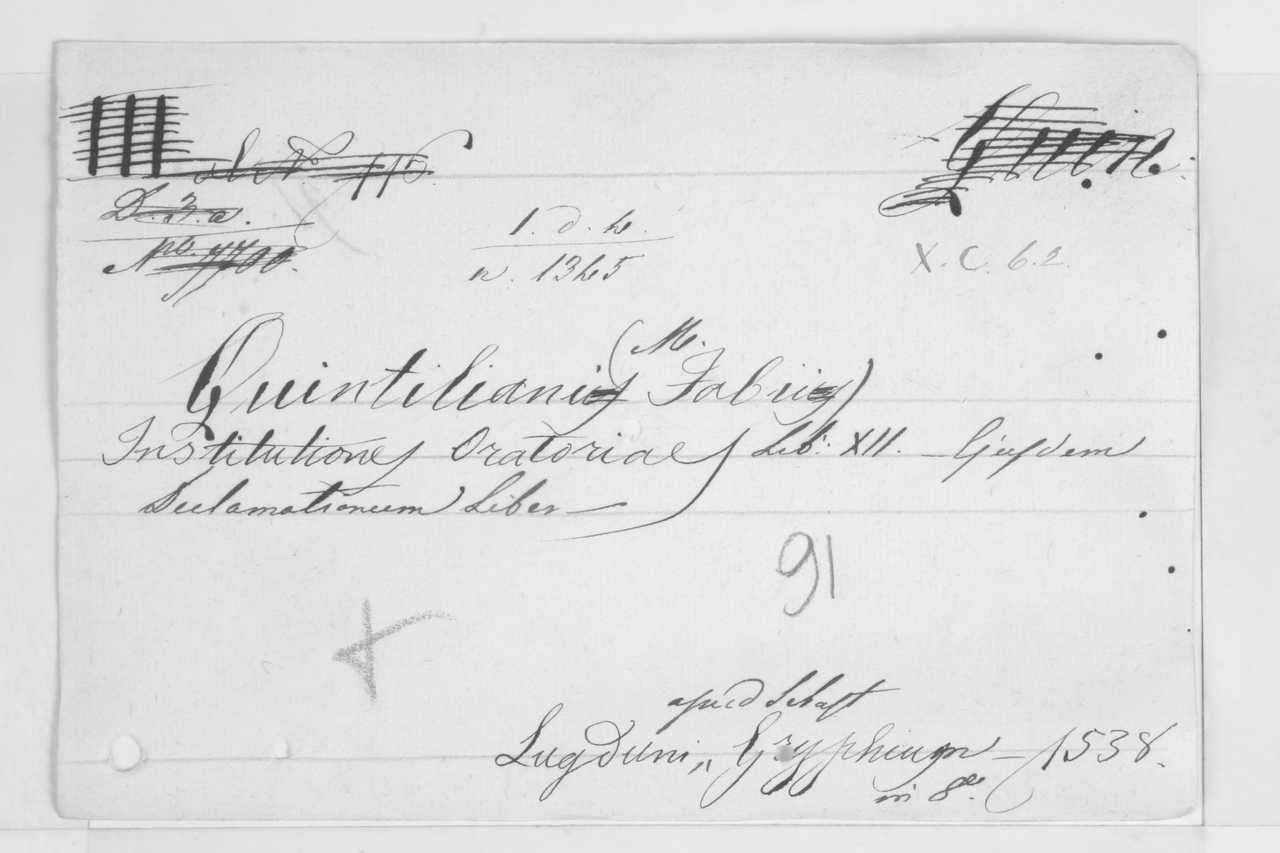 D. 3. a.
1. d. h.
X. C. 6. 2.
No. 7700.
n. 1345
(M.
Quintiliani Fabii)
Institutiones Oratoriae Lib: XII. – Ejusdem
Declamationum Liber –
91
apud Sebast
Lugduni,, Gryphium – 1538.
in 8°.